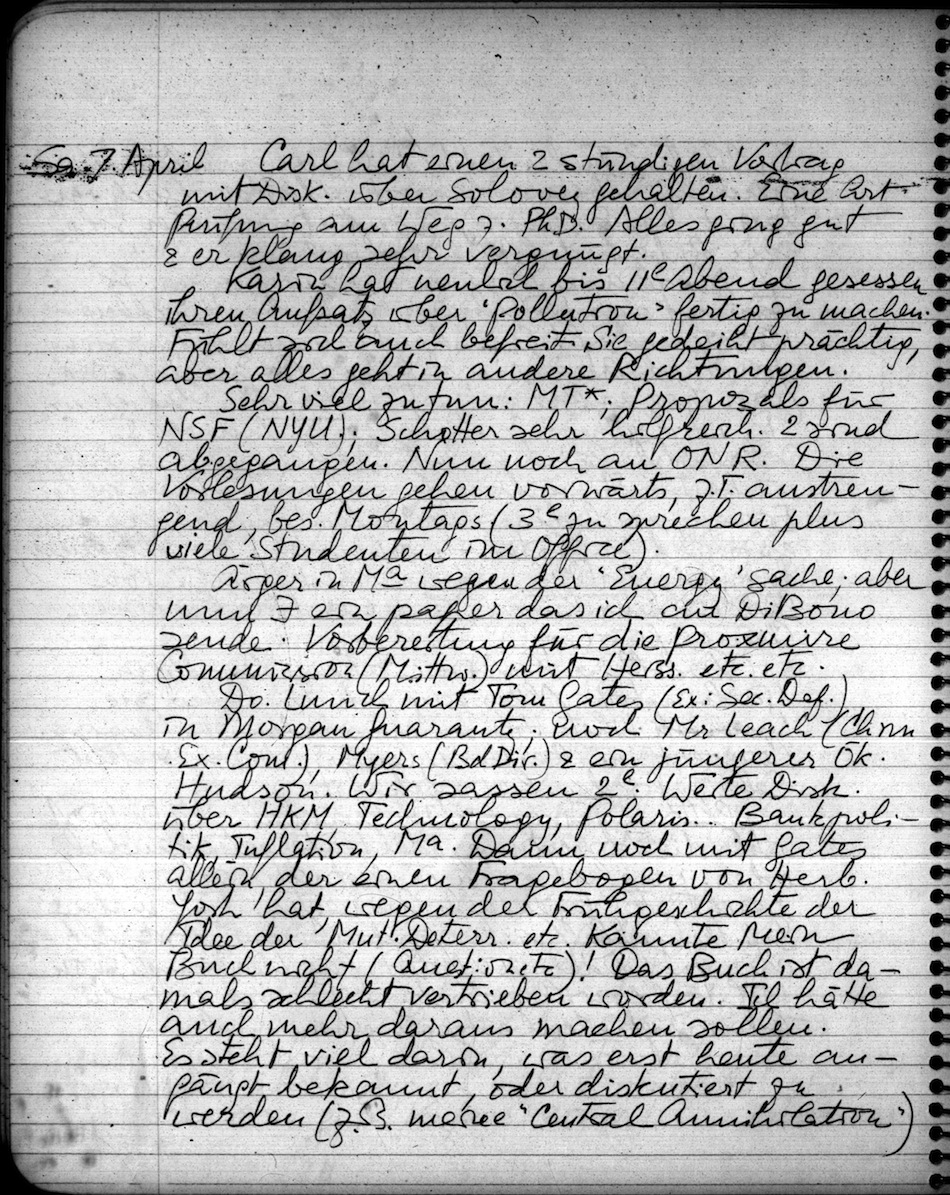 Sa 7. April Carl hat einen 2 stündigen Vortrag
mit Disk. über Solovey gehalten. Eine Art
Prüfung am Weg z. PhD. Alles ging gut
& er klang sehr vergnügt.
Karin hat neulich bis 11e Abend gesessen
ihren Aufsatz über "Pollution" fertig zu machen.
Fühlt sich auch befreit. Sie gedeiht prächtig,
aber alles geht in andere Richtungen.
Sehr viel zu tun: MT*; Proposals für
NSF (NYU); Schotter sehr hilfreich. 2 sind
abgegangen. Nun noch an ONR. Die
Vorlesungen gehen vorwärts, z.T. anstren-
gend, bes. Montags (3e zu sprechen plus
viele Studenten im Office).
Ärger in Ma wegen der 'Energy' Sache; aber
nun ein paper das ich an DiBono
sende. Vorbereitung für die Proxmire
Commission (Mittw.) mit Heiss. etc. etc.
Do. Lunch mit Tom Gates (Ex: Sec. Def.)
in Morgan Guaranty; noch Mr Leach (Chrm
Ex. Com.), Myers (Bd Dir.) & ein jüngerer Ök.
Hudson. Wir sassen 2e. Weite Disk.
über HKM, Technology, Polaris.. Bankpoli-
tik, Inflation, Ma. Dann noch mit Gates
allein, der einen Fragebogen von Herb.
York hat, wegen der Frühgeschichte der
Idee der 'Mut. Deterr. etc. Kannte Mein
Buch nicht (Question etc)! Das Buch ist da-
mals schlecht vertrieben worden. Ich hätte
auch mehr daraus machen sollen.
Es steht viel darin, was erst heute an-
fängt bekannt, oder diskutiert zu
werden (z.B. meine "Central Annihilation")